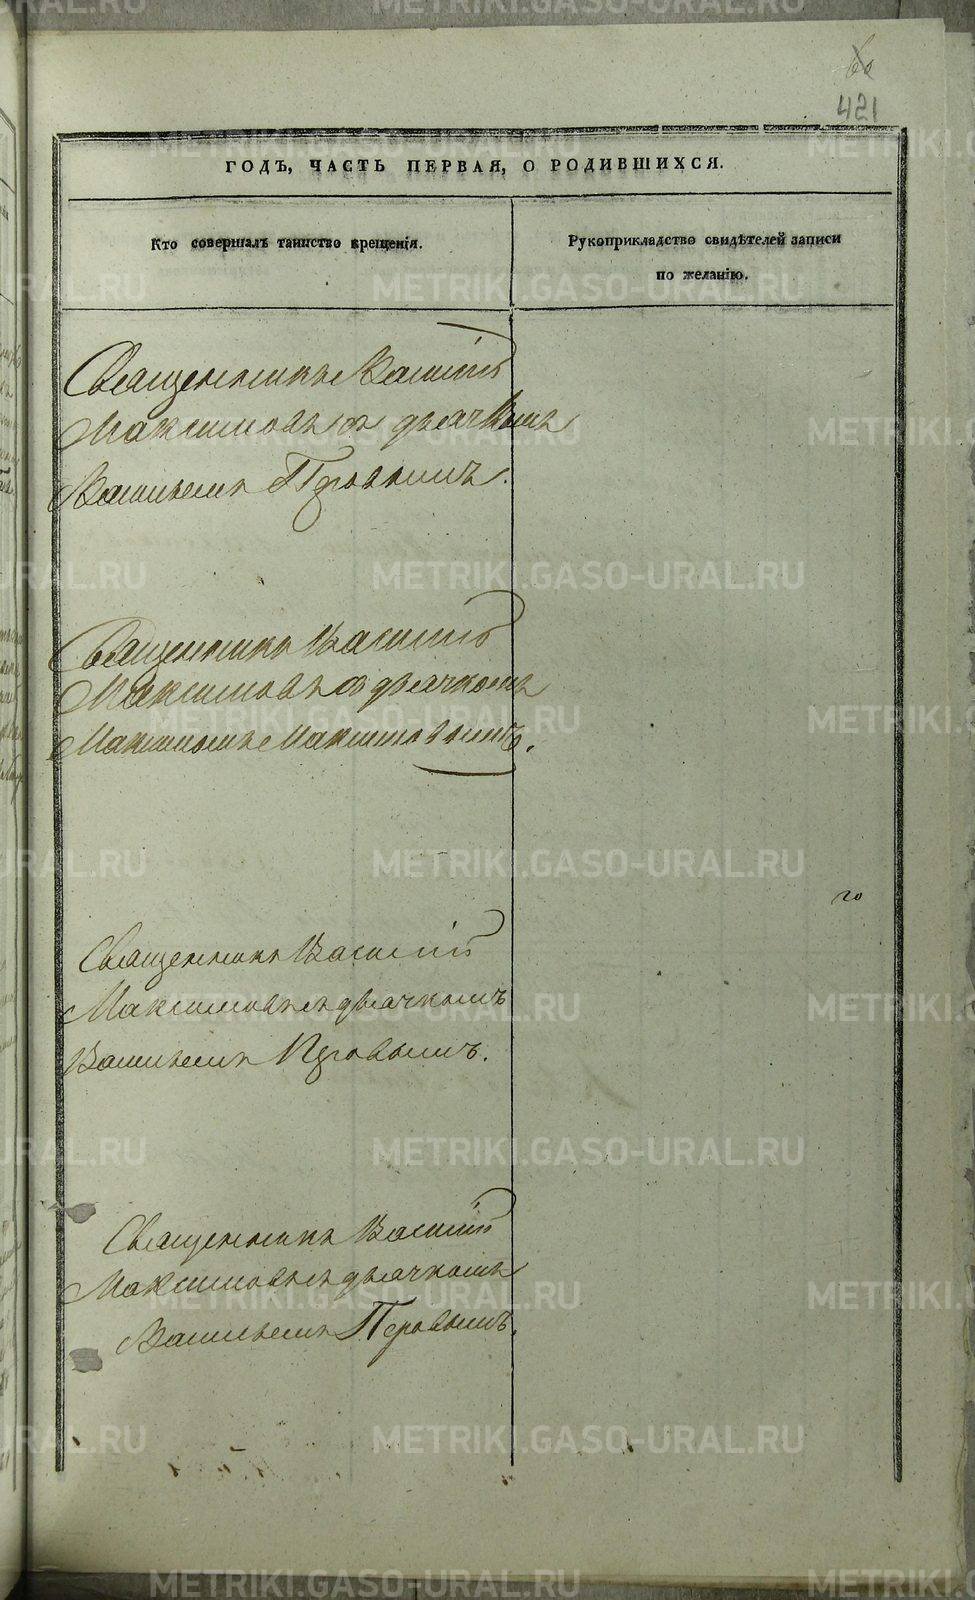 60
421
ГОДЪ, ЧАСТЬ ПЕРВАЯ, О РОДИВШИХСЯ.
Кто совершалъ таинство крещенія.
Рукоприкладство свидѣтелей записи
по желанію.
Священникъ Василій
Максимовъ съ дьячкомъ
Васильемъ Перовымъ.
Священникъ Василій
Максимовъ съ дьячкомъ
Максимомъ Максимовымъ.
Священникъ Василій
Максимовъ съ дьячкомъ
Васильемъ Перовымъ.
Священникъ Василій
Максимовъ съ дьячкомъ
Васильемъ Перовымъ.
METRIKI.GASO-URAL.RU